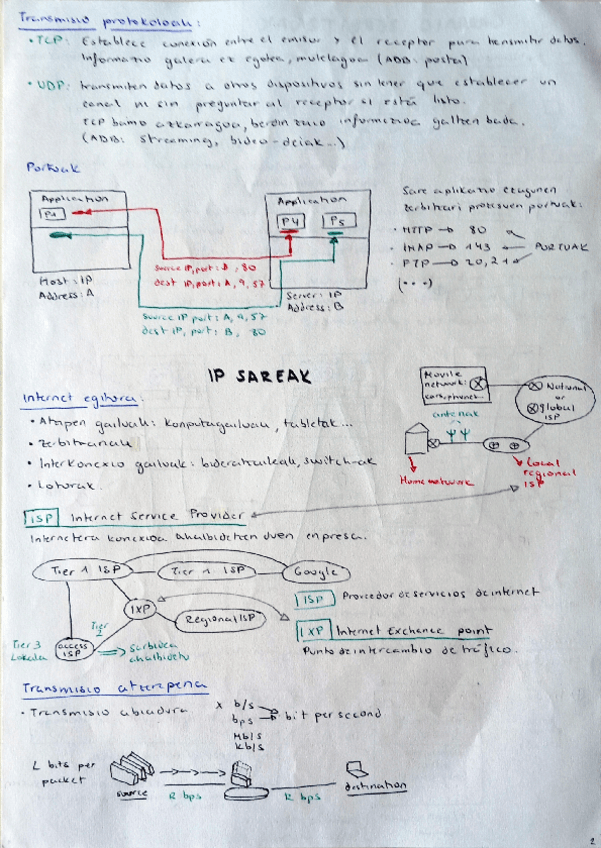 Transmisio protokoloak:
• TCP: Establece conexión entre el emisor y el receptor para transmitir datos.
Informazio galera ez egotea, motelagoa (ADB: posta)
• UDP: transmiten datos a otros dispositivos sin tener que establecer un
canal ni sin preguntar al receptor si está listo.
TCP baino azkarragoa, berdin zaio informazioa galtzen bada.
(ADB: streaming, bideo-deiak...)
Portuak
Application
P1
Host: IP
Address: A
Application
P4
P5
Server: IP
Address: B
source IP, port: B, 80
dest IP, port: A, 9,57
source IP port: A, 9,57
dest IP, port: B, 80
Sare aplikazio ezagunen
zerbitzari prozesuen portuak:
• HTTP → 80
• IMAP → 143 PORTUAK
• FTP → 20,21
(...)
IP SAREAK
Internet egitura:
• Atzipen gailuak: konputagailuak, tabletak...
• Zerbitzariak
• Interkonexio gailuak: bideratzaileak, switch-ak
• Loturak
Movile
network:
cars, phones...
National
or
global
ISP
antenak
Home network
Local
regional
ISP
ISP Internet Service Provider
Internetera konexioa ahalbidetzen duen enpresa.
Tier 1 ISP
Tier 1 ISP
Google
IXP
Regional ISP
Tier
2
Tier 3
Lokala
access
ISP
Sarbidea
ahalbidetu
ISP Proveedor de servicios de internet
IXP Internet Exchange point
Punto de intercambio de tráfico.
Transmisio atzerapena
• Transmisio abiadura
x b/s
bps
bit per second
Mb/s
kb/s
L bits per
packet
source
R bps
R bps
destination
2